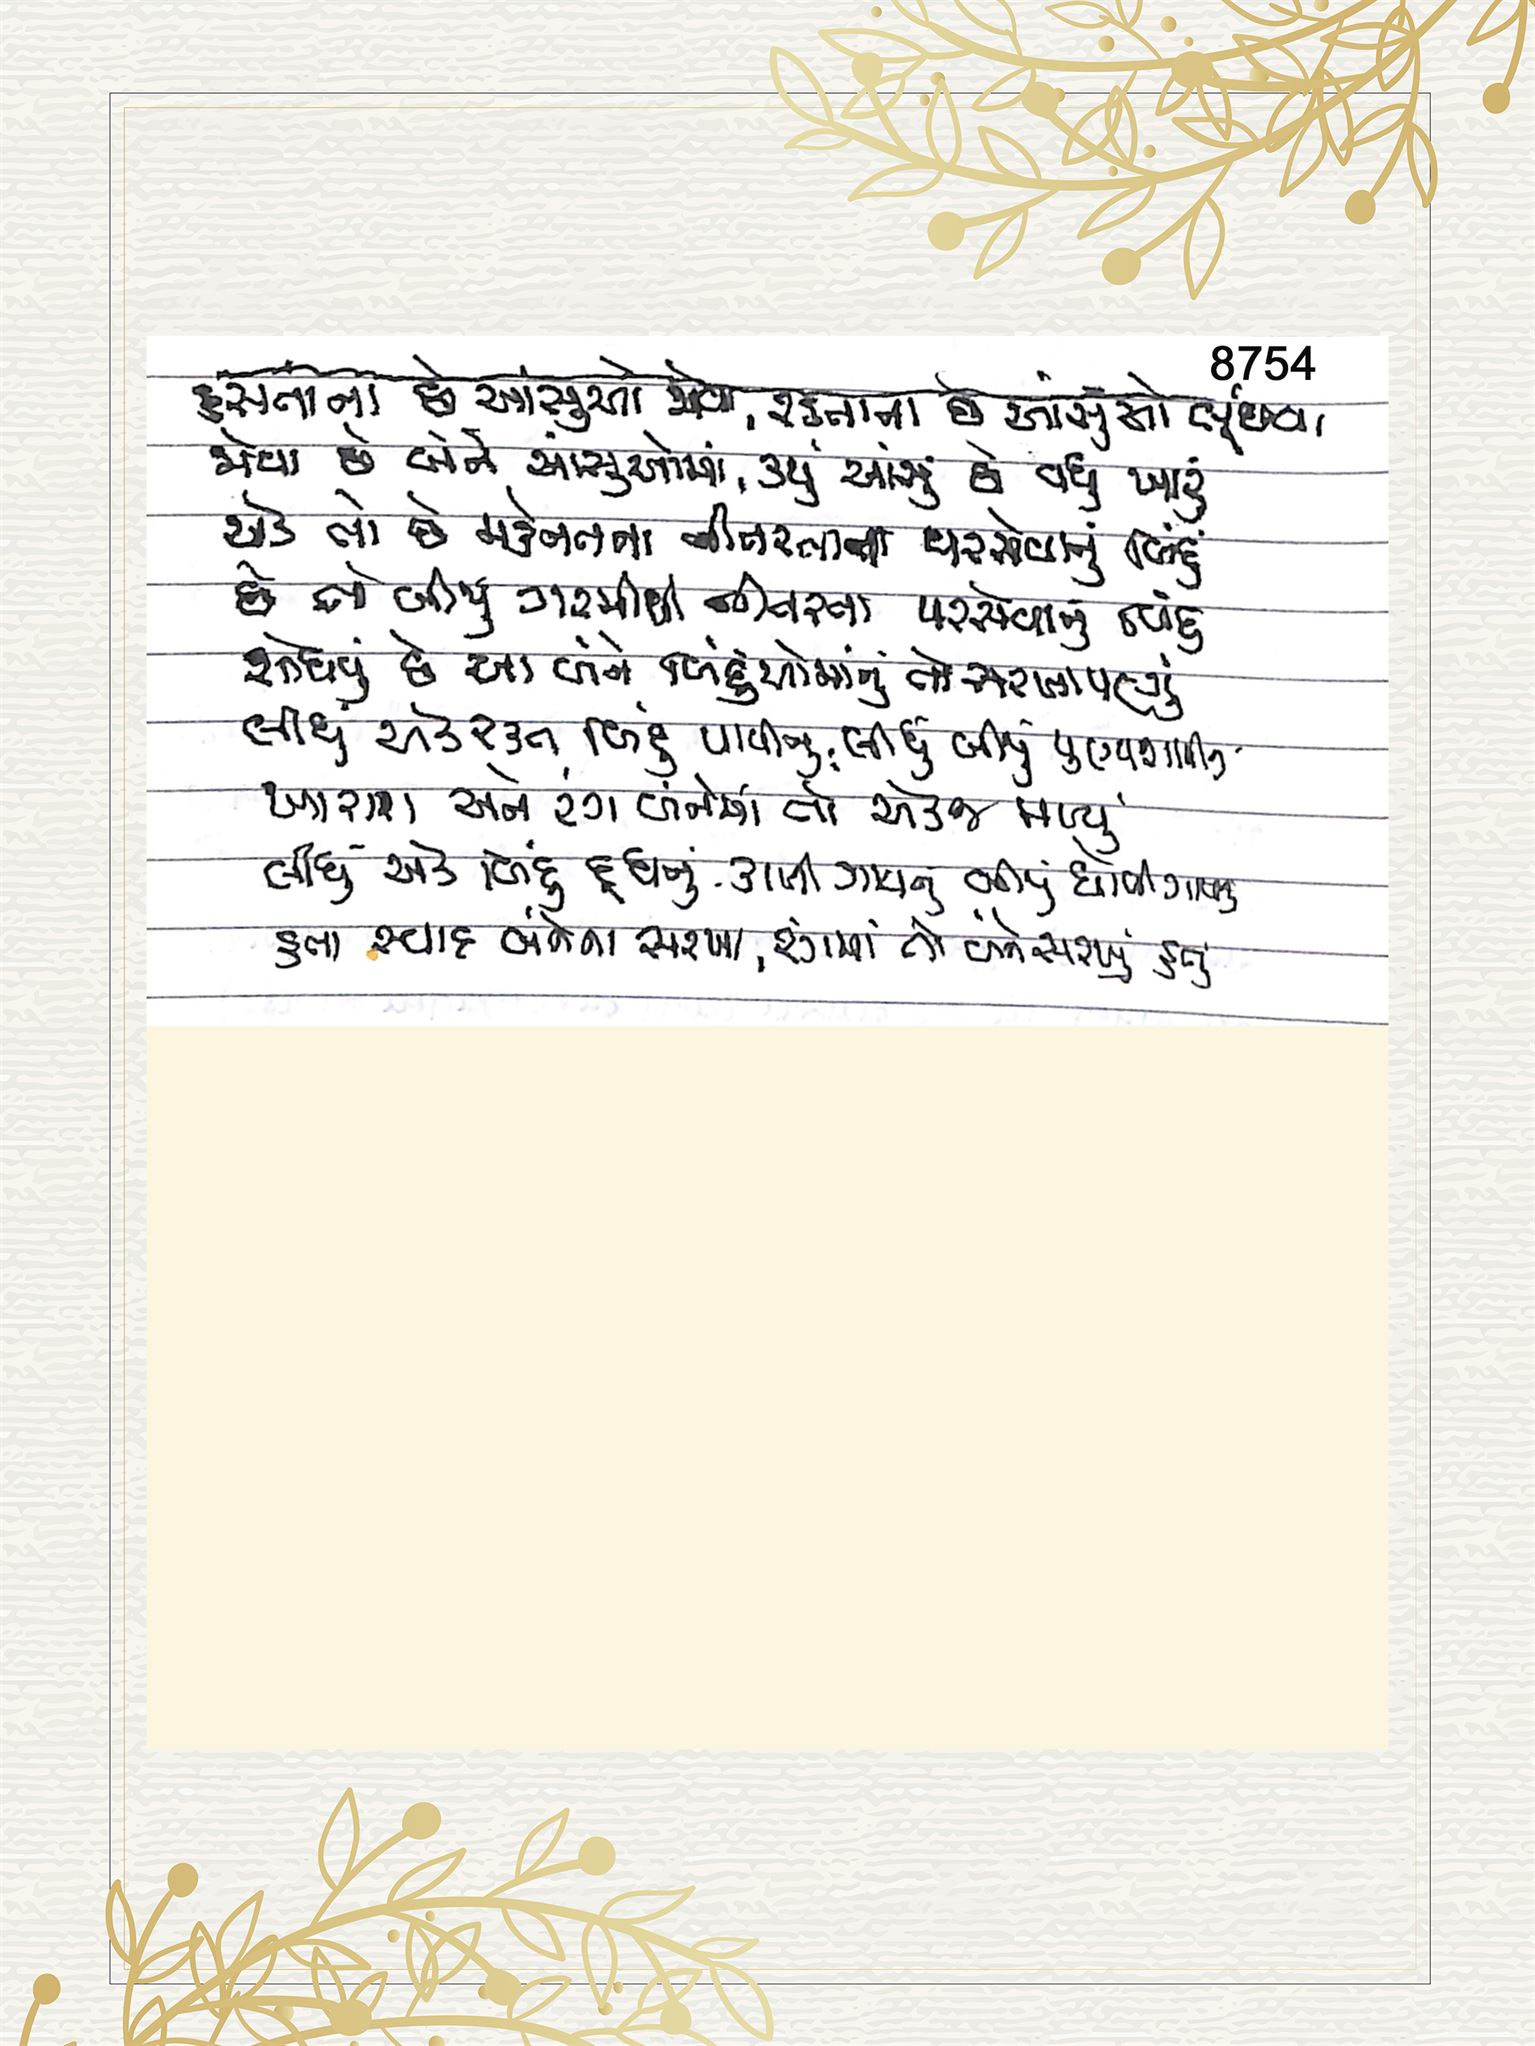 8754
હસતાના છે આંસુઓ જોવા, રડતાના છે આંસુઓ લૂંછવા
જોવા છે બંને આંસુઓમાં, કયું આંસું છે વધુ ખારું
એક તો છે મહેનતના નીતરતાના પરસેવાનું બિંદું
છે તો બીજું ગરમીથી નીતરતા પરસેવાનું બિંદુ
શોધવું છે આ બંને બિંદુઓમાંનું તો સરખાપણું
લીધું એક રક્ત બિંદુ પાપીનુ, લીધું બીજું પુણ્યશાળીનુ
ખારાશ અને રંગ બંનેમાં તો એકજ મળ્યું
લીધું એક બિંદુ દૂધનું કાળી ગાયનુ બીજું ધોળી ગાયનુ
હતા સ્વાદ બંનેના સરખા, રંગમાં તો બંને સરખું હતું